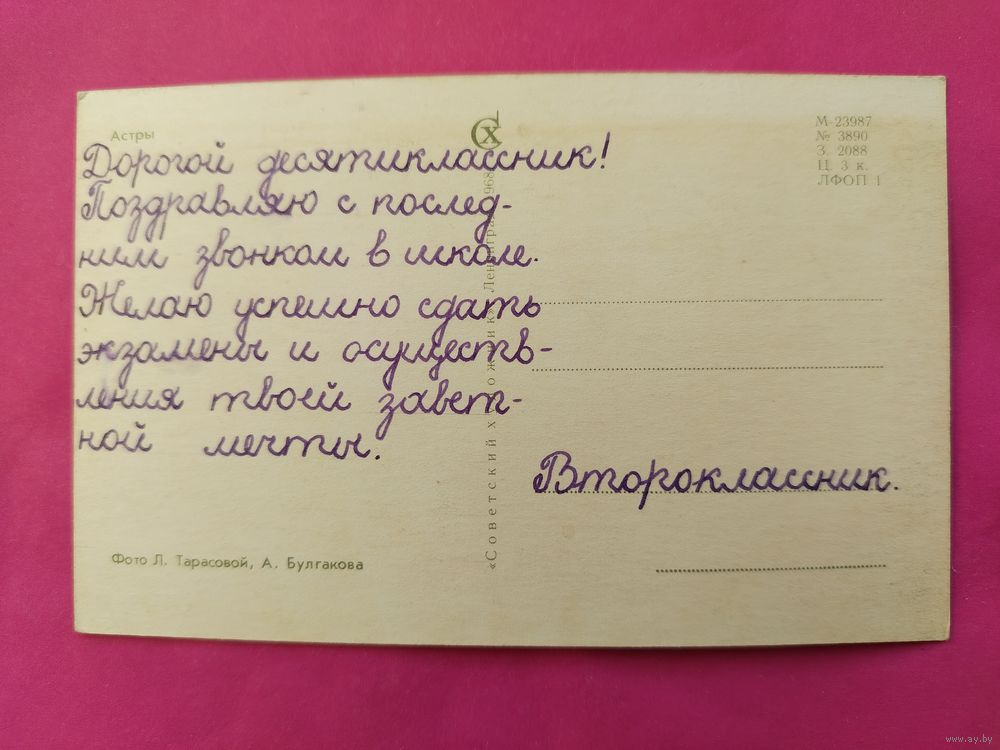 Астры
Дорогой десятиклассник!
Поздравляю с послед-
ним звонком в школе.
Желаю успешно сдать
экзамены и осуществ-
ления твоей завет-
ной мечты.
Фото Л. Тарасовой, А. Булгакова
СХ
«Советский художник» Ленинград 1968
М-23987
№ 3890
З. 2088
Ц. 3 к.
ЛФОП 1
Второклассник.
www.ay.by